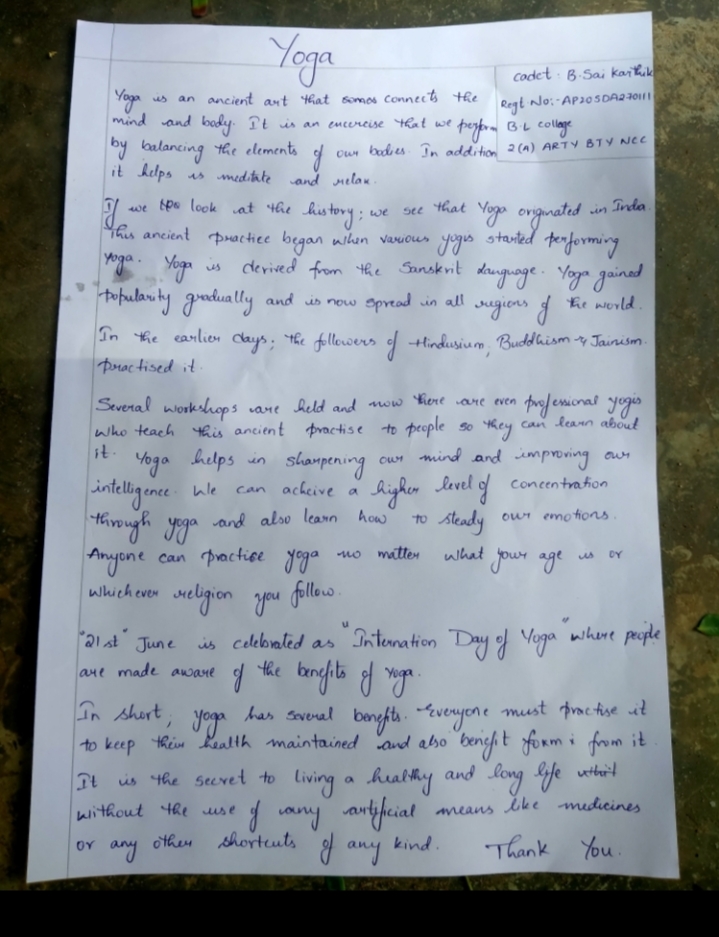 Yoga
cadet : B. Sai Karthik
Regt No:- AP20SDA270111
B.L college
2(A) ARTY BTY NCC
Yoga is an ancient art that connects the
mind and body. It is an excercise that we perform
by balancing the elements of our bodies. In addition
it helps us meditate and relax.
If we look at the history; we see that Yoga originated in India.
This ancient practice began when various yogis started performing
Yoga. Yoga is derived from the Sanskrit language. Yoga gained
popularity gradually and is now spread in all regions of the world.
In the earlier days; the followers of Hindusium, Buddhism & Jainism.
practised it.
Several workshops are held and now there are even professional yogis
who teach this ancient practise to people so they can learn about
it. Yoga helps in sharpening our mind and improving our
intelligence. We can acheive a higher level of concentration
through yoga and also learn how to steady our emotions.
Anyone can practise yoga no matter what your age is or
whichever religion you follow.
"21st" June is celebrated as "Internation Day of Yoga" where people
are made aware of the benefits of Yoga.
In short; yoga has several benefits. Everyone must practise it
to keep their health maintained and also benefit form i from it
It is the secret to living a healthy and long life
without the use of any artificial means like medicines
or any other shortcuts of any kind. Thank You.